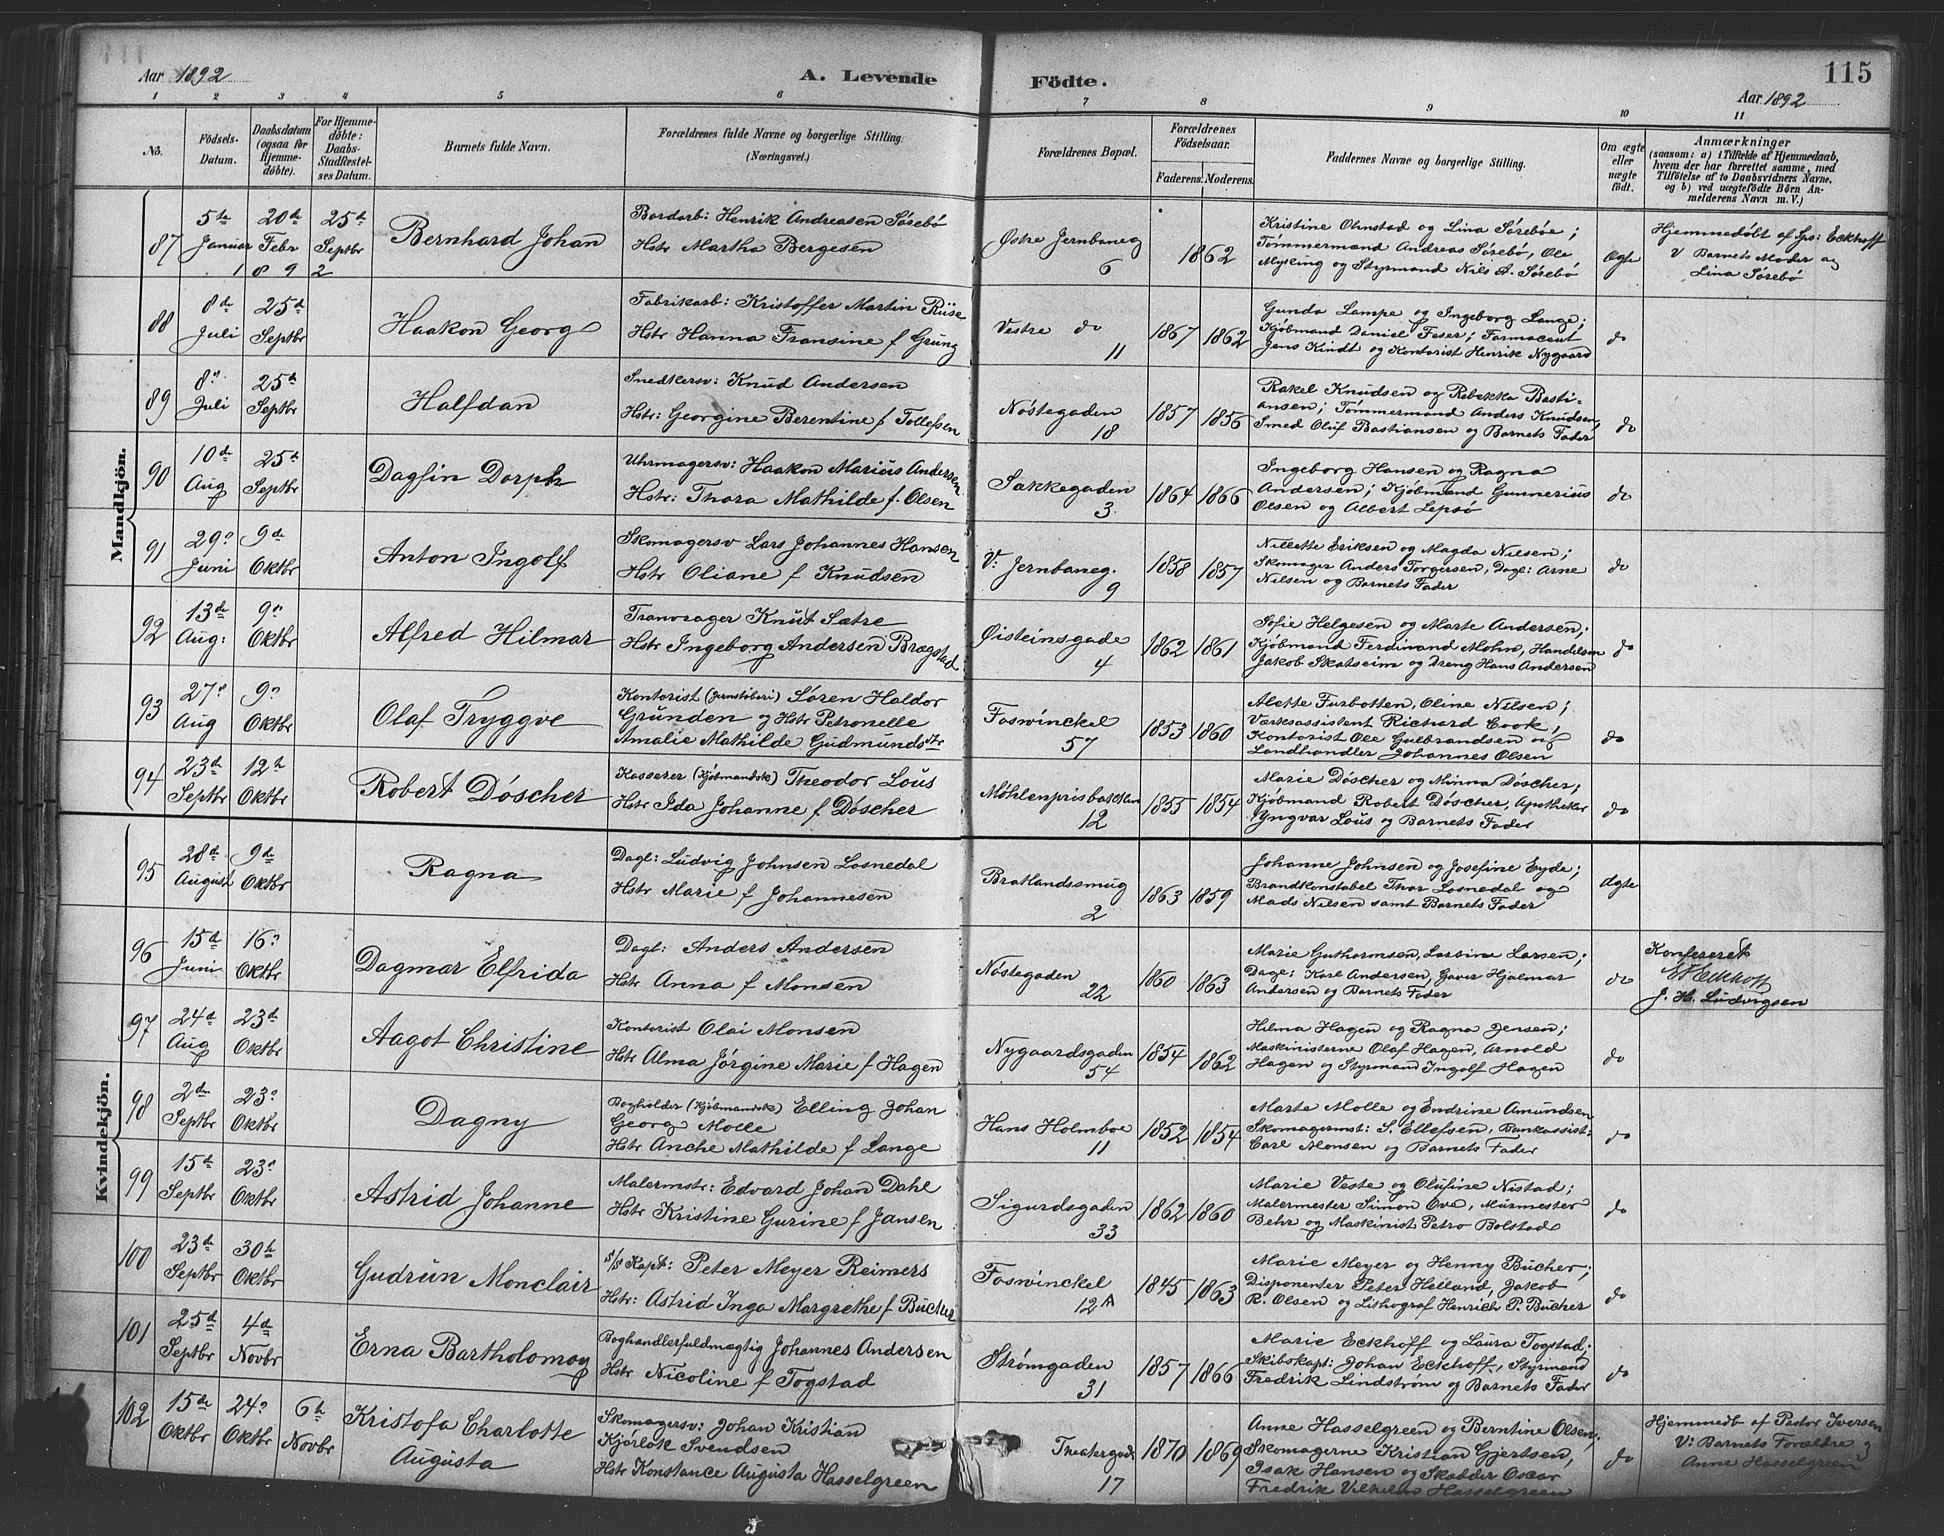 Aar 1892
A. Levende
Födte.
115
Aar 1892
1 2 3 4 5 6 7 8 9 10 11
No.
Födsels-
Datum.
Daabsdatum
(ogsaa for
Hjemme-
döbte).
For Hjemme-
döbte:
Daabs-
Stadfæstel-
ses Datum.
Barnets fulde Navn.
Forældrenes fulde Navne og borgerlige Stilling.
(Næringsvei.)
Forældrenes Bopæl.
Forældrenes
Födselsaar.
Faderens.
Moderens.
Faddernes Navne og borgerlige Stilling.
Om ægte
eller
uægte
födt.
Anmærkninger
(saasom: a) i Tilfælde af Hjemmedaab,
hvem der har forrettet samme, med
Tilföielse af to Daabsvidners Navne,
og b) ved uægtefödte Börn An-
melderens Navn m. V.)
Mandkjön.
87
5te
Januar
20de
Febr
25de
Septbr
1 8 9 2
Bernhard Johan
Bordarb: Henrik Andreasen Sørebø
Hstr Martha Bergesen
Østre Jernbaneg
6
1862
Kristine Olmstad og Lina Sørebøe;
Tømmermænd Andreas Sørebø, Ole
Myking og Styrmand Nils A. Sørebø
Ægte
Hjemmedøbt af Sps: Eckhoff
V Barnets Moder og
Lina Sørebø
88
8de
Juli
25de
Septbr
Haakon Georg
Fabrikarb: Kristoffer Martin Riise
Hstr Hanna Fransine f Grung
Vestre do
11
1867
1862
Gunda Lampe og Ingeborg Lange;
Kjøbmand Daniel Feser; Farmaceut
Jens Kindt og Kontorist Henrik Nygaard
do
89
8"
Juli
25de
Septbr
Halfdan
Snedkersv: Knud Andersen
Hstr: Georgine Berentine f Tollefsen
Nøstegaden
18
1857
1856
Rakel Knudsen og Rebekka Basti-
ansen; Tømmermand Anders Knudsen,
Smed Oluf Bastiansen og Barnets Fader
do
90
10de
Aug
25de
Septbr
Dagfin Dorph
Uhrmagersv: Haakon Marius Andersen
Hstr: Thora Mathilde f. Olsen
Sækkegaden
3
1864
1866
Ingeborg Hansen og Ragna
Andersen; Kjøbmænd Gunnerius
Olsen og Albert Lepsø
do
91
29"
Juni
9de
Oktbr
Anton Ingolf
Skomagersv Lars Johannes Hansen
Hstr Oliane f Knudsen
V: Jernbaneg.
9
1858
1857
Nillette Eriksen og Magda Nilsen;
Skomager Anders Torgersen, Dagl: Arne
Nilsen og Barnets Fader
do
92
13de
Aug:
9"
Oktbr
Alfred Hilmar
Tranvrager Knut Sætre
Hstr Ingeborg Andersen Brægstad
Øisteinsgade
4
1862
1861
Sofie Helgesen og Marte Andersen;
Kjøbmand Ferdinand Mohn, Handelsm
Jakob Skatseim og Dreng Hans Andersen
do
93
27"
Aug
9"
Oktbr
Olaf Tryggve
Kontorist (Jernstøberi) Søren Haldor
Grunden og Hstr Petronelle
Amalie Mathilde Gudmundsdtr
Foswinckel
57
1853
1860
Alette Furbotten, Oline Nilsen;
Værksassistent Richard Cook,
Kontorist Ole Gulbrandsen og
Landhandler Johannes Olsen
do
94
23de
Septbr
12te
Oktbr
Robert Döscher
Kasserer (Kjøbmandsk) Theodor Lous
Hstr Ida Johanne f Döscher
Møhlenprisbakken
12
1855
1854
Marie Döscher og Minna Döscher;
Kjøbmand Robert Döscher, Apotheker
Yngvar Lous og Barnets Fader
do
Kvindekjön.
95
28de
August
9de
Oktbr
Ragna
Dagl: Ludvig Johnsen Losnedal
Hstr Marie f Johannesen
Bratlandssmug
2
1863
1859
Johanne Johnsen og Josefine Eyde;
Brandkonstabel Thor Losnedal og
Mads Nilsen samt Barnets Fader
Ægte
96
15de
Juni
16"
Oktbr
Dagmar Elfrida
Dagl: Anders Andersen
Hstr Anna f Monsen
Nøstegaden
22
1860
1863
Marie Guthormsen, Larsine Larsen;
Dagl: Karl Andersen, Gaver Hjalmar
Andersen og Barnets Fader
do
Konfereret
Eckhoff
J. H. Ludvigsen
97
24de
Aug
23de
Oktbr
Aagot Christine
Kontorist Olai Monsen
Hstr Alma Jørgine Marie f Hagen
Nygaardsgaden
54
1854
1862
Hilma Hagen og Ragna Jensen;
Maskinisterne Olaf Hagen, Arnold
Hagen og Styrmand Ingolf Hagen
do
98
2den
Septbr
23"
Oktbr
Dagny
Bogholder (Kjøbmandsk) Elling Johan
Georg Molle
Hstr Anche Mathilde f Lange
Hans Holmboe
11
1852
1854
Marte Molle og Endrine Amundsen
Skomagermst: S. Ellefsen, Bankassist:
Carl Monsen og Barnets Fader
do
99
15de
Septbr
23"
Oktbr
Astrid Johanne
Malermstr: Edvard Johan Dahl
Hstr Kristine Gurine f Jansen
Sigurdsgaden
33
1862
1860
Marie Veste og Olufine Nistad;
Malermester Simon Ove, Murmester
Behr og Maskinist Petro Bolstad
do
100
23de
Septbr
30te
Oktbr
Gudrun Monclair
S/S Kapt: Peter Meyer Reimers
Hstr: Astrid Inga Margrethe f Bücher
Foswinckel
12A
1845
1863
Marie Meyer og Henny Bücher;
Disponenter Peter Helland, Jakob
R. Olsen og Lithograf Henrich P. Bücher
do
101
25de
Septbr
4de
Novbr
Erna Bartholomoy
Boghandlerfuldmægtig Johannes Andersen
Hstr Nicoline f Togstad
Strømgaden
31
1857
1866
Marie Eckhoff og Laura Togstad;
Skibskapt: Johan Eckhoff, Styrmand
Fredrik Lindstrøm og Barnets Fader
do
102
15de
Oktbr
24"
Oktbr
6te
Novbr
Kristofa Charlotte
Augusta
Skomagersv: Johan Kristian
Kjørlok Svendsen
Hstr Konstance Augusta Hasselgreen
Theatergade
17
1870
1869
Anne Hasselgreen og Berntine Olsen;
Skomagerne Kristian Gjertsen,
Isak Hansen og Skrædder Oscar
Fredrik Vilhelm Hasselgreen
do
Hjemmedb af Pastor Iversen
V: Barnets Forældre og
Anne Hasselgreen